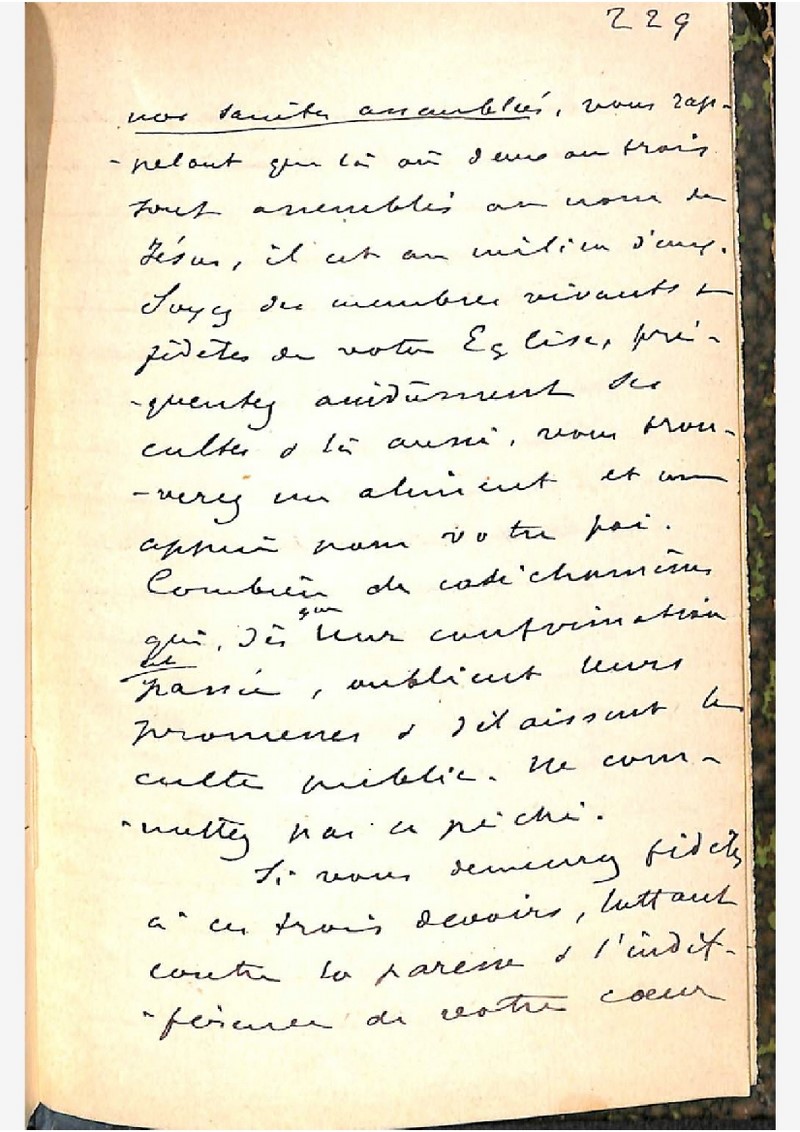 229
nos saintes assemblées, vous rap-
-pelant que là où deux ou trois
sont assemblés au nom de
Jésus, il est au milieu d'eux.
Soyez des membres vivants &
fidèles de votre Eglise, fré-
-quentez assidûment ses
cultes & là aussi, vous trou-
-verez un aliment et un
appui pour votre foi.
Combien de catéchumènes
que
qui, dès leur confirmation
est
passée, oublient leurs
promesses & délaissent le
culte public. Ne com-
-mettez pas ce péché.
Si vous demeurez fidèles
à ces trois devoirs, luttant
contre la paresse & l'indif-
-férence de votre cœur